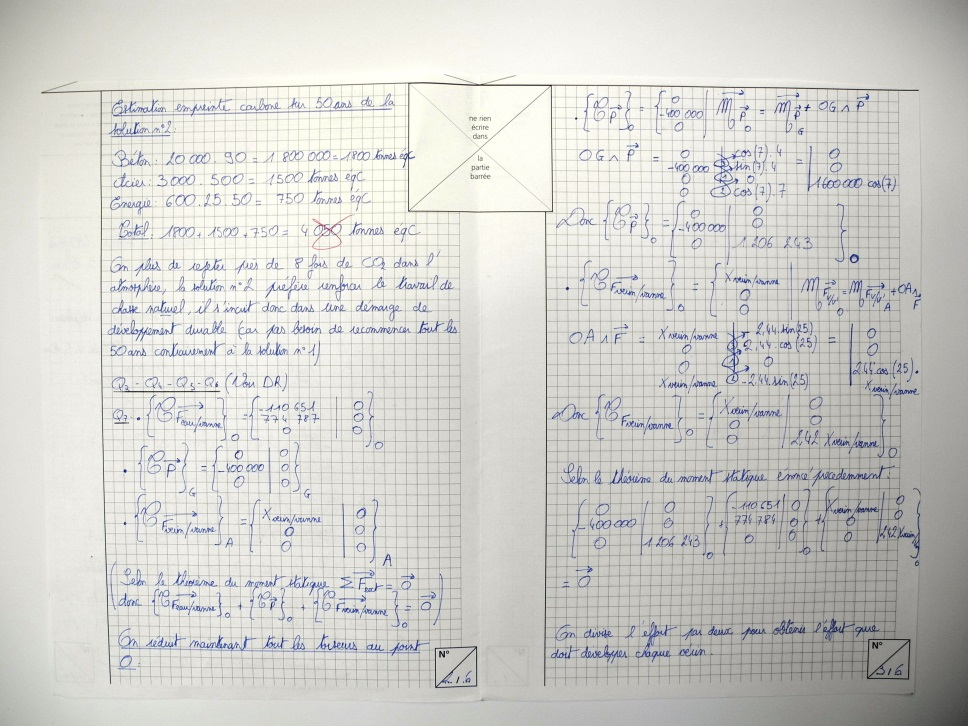 Estimation empreinte carbone sur 50 ans de la
solution n°2:
Béton: 20 000 . 90 = 1 800 000 = 1800 tonnes éqC
Acier: 3 000 . 500 = 1500 tonnes éqC
Energie: 600 . 25 . 50 = 750 tonnes éqC
Total: 1800 + 1500 + 750 = 4 050 tonnes eqC
En plus de rejeter près de 8 fois de CO2 dans l'
atmosphère, la solution n°2 préfère renforcer le travail de
chasse naturel, il s'incrit donc dans une démarge de
développement durable (car pas besoin de recommencer tout les
50 ans contrairement à la solution n°1)
Q3 - Q4 - Q5 - Q6 (Voir DR)
Q7 . {𝒯 Feau/vanne}O = {-110 651 | 0
774 787 | 0
0 | 0}O
. {𝒯 P}G = {0 | 0
-400 000 | 0
0 | 0}G
. {𝒯 Fverin/vanne}A = {Xverin/vanne | 0
0 | 0
0 | 0}A
(Selon le théorème du moment statique Σ Fext = 0
donc {𝒯 Feau/vanne}O + {𝒯 P}O + {𝒯 Fverin/vanne}O = 0)
On réduit maintenant tout les torseurs au point
O:
N°
ne rien
écrire
dans
la
partie
barrée
. {𝒯 P}O = {0
-400 000
0 | M P O = M P G + OG ∧ P
OG ∧ P = 0 cos(7) . 4 = | 0
-400 000 sin(7) . 4 | 0
0 0 | 1600000 cos(7)
0 cos(7) . 7
Donc {𝒯 P}O = {0 | 0
-400 000 | 0
0 | 1 206 243}O
. {𝒯 Fverin/vanne}O = {Xverin/vanne
0
0 | M Fv/v O = M Fv/v A + OA ∧ F
OA ∧ F = Xverin/vanne 2,44 . sin(25) = | 0
0 2,44 . cos(25) | 0
0 0 | 2,44 cos(25) .
Xverin/vanne 2,44 . sin(25) Xverin/vanne
Donc {𝒯 Fverin/vanne}O = {Xverin/vanne | 0
0 | 0
0 | 2,42 Xverin/vanne}O
Selon le théorème du moment statique énoncé précedemment:
{0 | 0
-400 000 | 0
0 | 1 206 243}O + {-110 651 | 0
774 784 | 0
0 | 0}O + {Xverin/vanne | 0
0 | 0
0 | 2,42 Xverin/}O
= 0
On divise l'éffort par deux pour obtenir l'éffort que
doit developper chaque verin.
N°
3/6